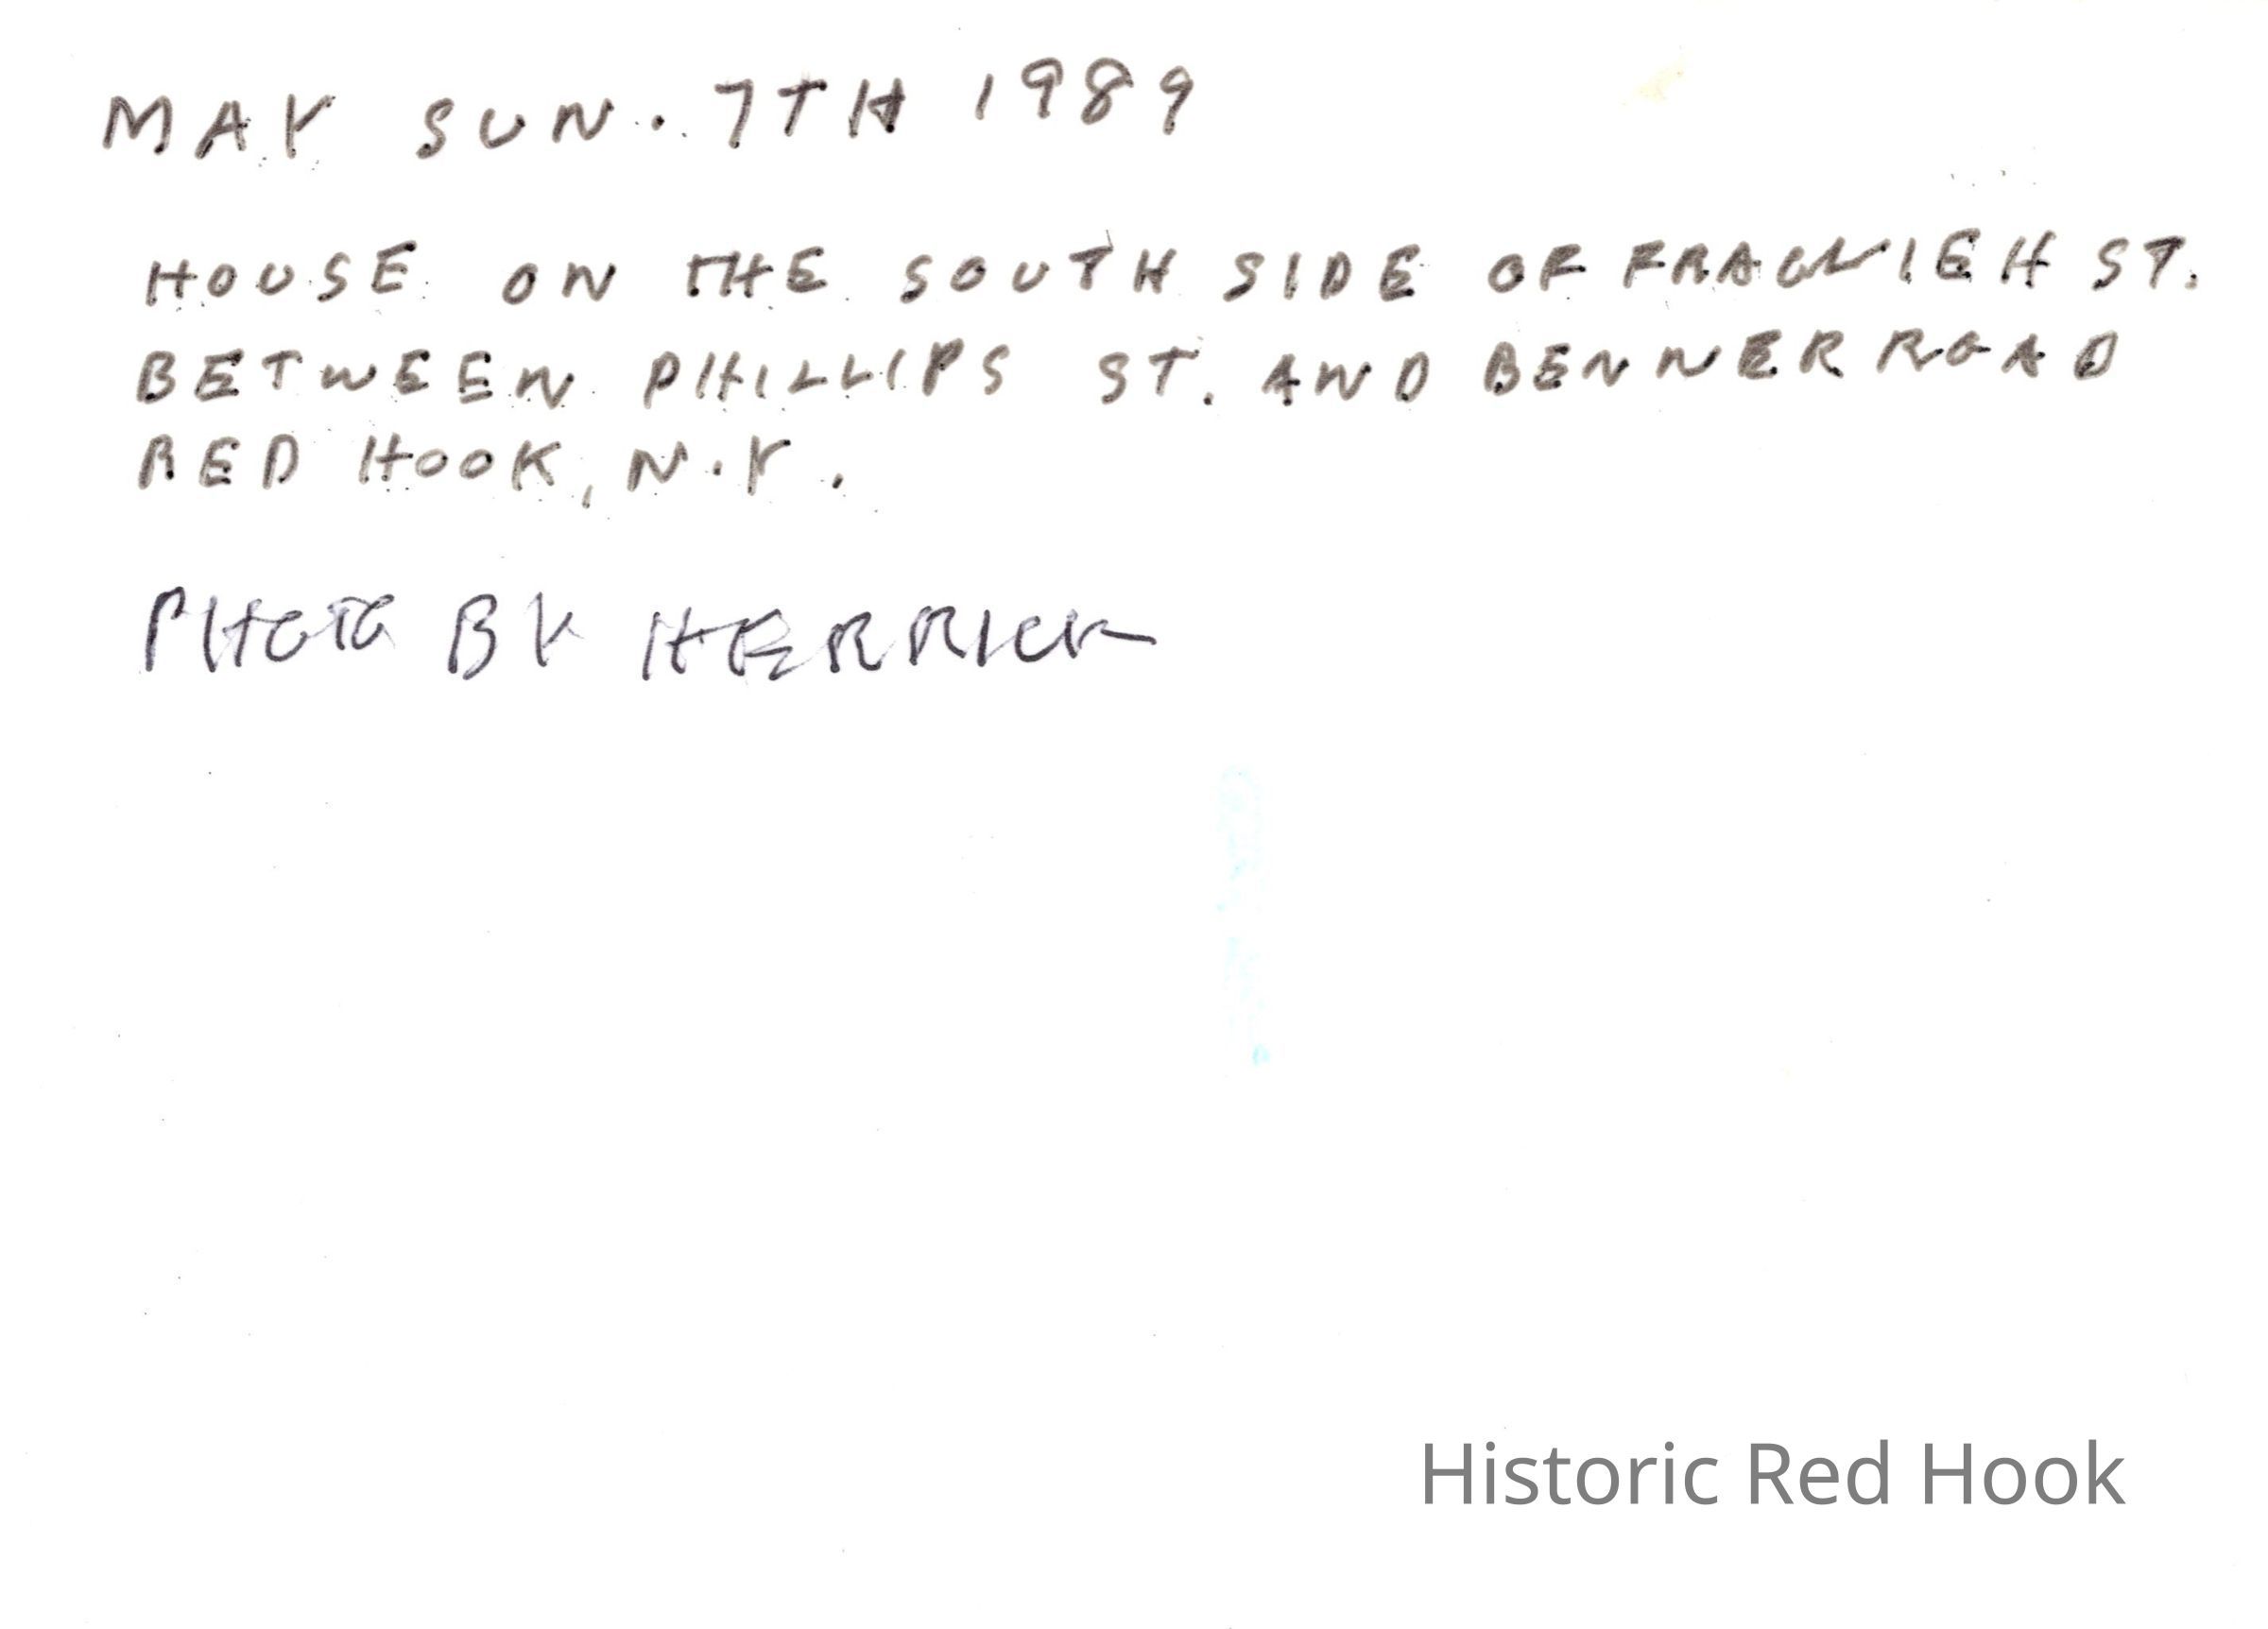 MAY SUN. 7TH 1989
HOUSE ON THE SOUTH SIDE OF ST.
BETWEEN PHILLIPS ST. AND BENNER ROAD
RED HOOK, N.Y.
PHOTO BY HERRICK
Historic Red Hook